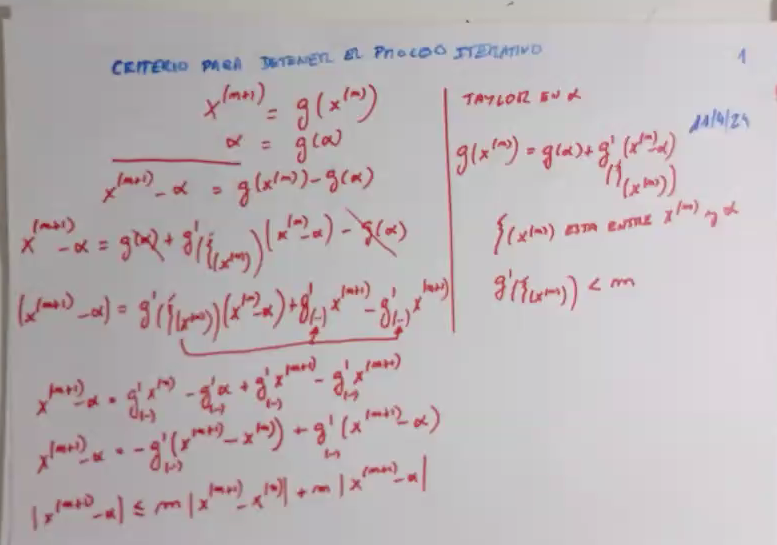 CRITERIO PARA DETENER EL PROCESO ITERATIVO
1
11/4/24
x^(m+1) = g(x^(m))
α = g(α)
x^(m+1) - α = g(x^(m)) - g(α)
x^(m+1) - α = g(α) + g'(ξ(x^(m)))(x^(m) - α) - g(α)
(x^(m+1) - α) = g'(ξ(x^(m)))(x^(m) - α) + g'(-) x^(m+1) - g'(-) x^(m+1)
x^(m+1) - α = g'(-) x^(m) - g'(-) α + g'(-) x^(m+1) - g'(-) x^(m+1)
x^(m+1) - α = - g'(-) (x^(m+1) - x^(m)) + g'(-) (x^(m+1) - α)
|x^(m+1) - α| ≤ m |x^(m+1) - x^(m)| + m |x^(m+1) - α|
TAYLOR EN α
g(x^(m)) = g(α) + g'(ξ(x^(m))) (x^(m) - α)
ξ(x^(m)) ESTA ENTRE x^(m) y α
g'(ξ(x^(m))) < m